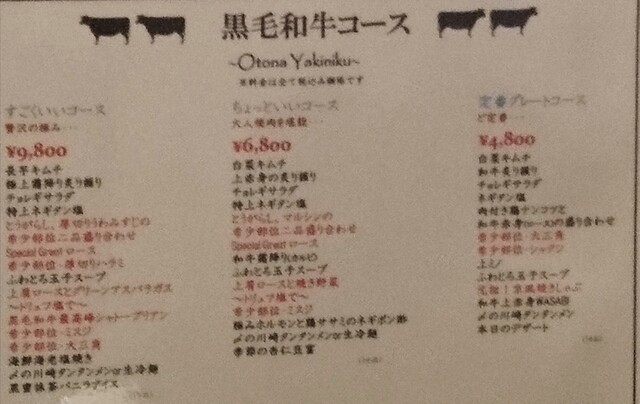 黒毛和牛コース
~Otona Yakiniku~
※料金は全て税込み価格です
すごくいいコース
贅沢の極み…
¥9,800
長芋キムチ
極上霜降り炙り握り
チョレギサラダ
特上ネギタン塩
とうがらし、厚切りうわみすじの
希少部位二品盛り合わせ
Special Great ロース
希少部位・厚切りハラミ
ふわとろ玉子スープ
上肩ロースとグリーンアスパラガス
～トリュフ塩で～
黒毛和牛最高峰シャトーブリアン
希少部位・ミスジ
希少部位・大三角
海鮮海老塩焼き
〆の川崎タンタンメンor生冷麺
黒蜜抹茶バニラアイス
ちょっといいコース
大人焼肉を堪能…
¥6,800
白菜キムチ
上赤身の炙り握り
チョレギサラダ
特上ネギタン塩
とうがらし、マルシンの
希少部位二品盛り合わせ
Special Great ロース
和牛霜降り(カルビ)
ふわとろ玉子スープ
上肩ロースと焼き野菜
～トリュフ塩で～
希少部位・ミスジ
極みホルモンと鶏ササミのネギポン酢
〆の川崎タンタンメンor生冷麺
季節の杏仁豆腐
定番グレートコース
ど定番…
¥4,800
白菜キムチ
和牛炙り握り
チョレギサラダ
ネギタン塩
肉付き鶏ナンコツと
和牛赤身(ロース)の盛り合わせ
希少部位・大三角
希少部位・シャクシ
上ミノ
ふわとろ玉子スープ
元祖！京風焼きしゃぶ
和牛上赤身WASABI
〆の川崎タンタンメン
本日のデザート